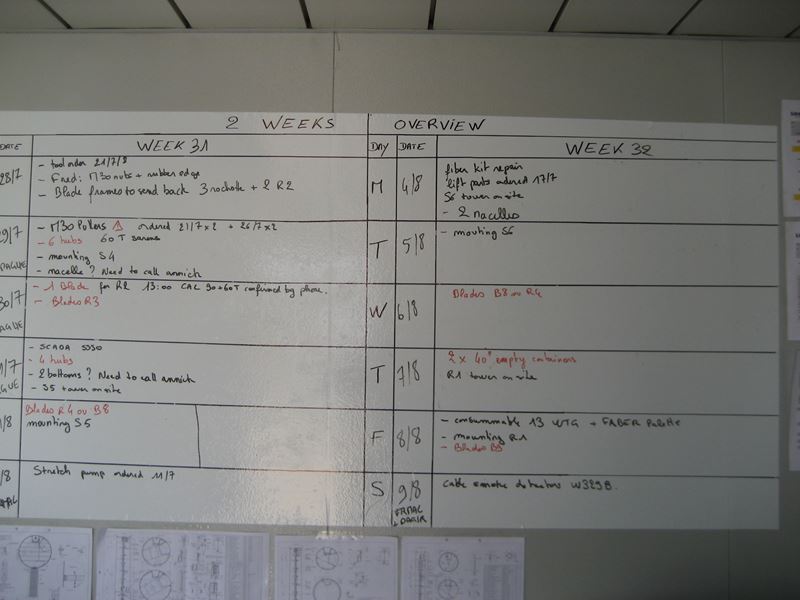 2 WEEKS OVERVIEW
DATE WEEK 31 DAY DATE WEEK 32
28/7
- tool order 21/7/8
- Fred: M30 nuts + rubber edge
- Blade frames to send back 3 + 2 R2
M 4/8
fiber kit repair
lift parts ordered 17/7
S6 tower on site
- 2 nacelles
29/7
- M30 Pullers ordered 21/7 x 2 + 26/7 x 2
- 6 hubs 60 T
- mounting S4
- nacelle? Need to call annick
T 5/8
- mouting S6
30/7
- 1 Blade for R2 13:00 CAL 90+60T confirmed by phone.
- Blades R3
W 6/8
Blades B8 ou R4
1/7
- SCADA
- 4 hubs
- 2 bottoms? Need to call annick
- S5 tower on site
T 7/8
2 x 40" empty containers
R1 tower on site
1/8
Blades R4 ou B8
mounting S5
F 8/8
- consummable 13 WTG + FABER Palette
- mounting R1
- Blades B9
/8
Stretch pump ordered 11/7
S 9/8
Cable smoke detectors W3298.